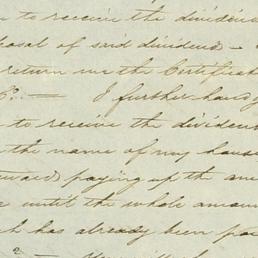 to receive the dividend
posal of said dividend - 
return me the Certificat
I further hand
to receive the dividend
the name of my
paying up the am
until the whole amoun
has already been pa